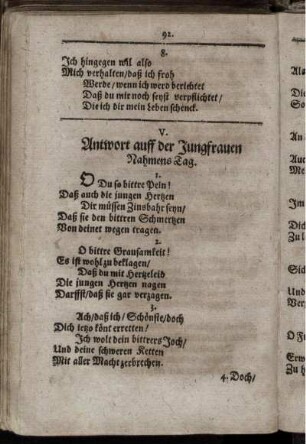 92.
8.
Ich hingegen wil also
Mich verhalten/daß ich froh
Werde/wenn ich werd berichtet
Daß du mir noch seyst verpflichtet/
Die ich dir mein Leben schenck.
V.
Antwort auff der Jungfrauen
Nahmens Tag.
1.
O Du so bittre Pein!
Daß auch die jungen Hertzen
Dir müssen Zinsbahr seyn/
Daß sie den bittren Schmertzen
Von deinet wegen tragen.
2.
O bittre Grausamkeit!
Es ist wohl zu beklagen/
Daß du mit Hertzeleid
Die jungen Hertzen nagen
Darffst/daß sie gar verzagen.
3.
Ach/daß ich/Schönste/doch
Dich jetzo könt erretten/
Ich wolt dein bittrers Joch/
Und deine schweren Ketten
Mit aller Macht zerbrechen.
4. Doch/